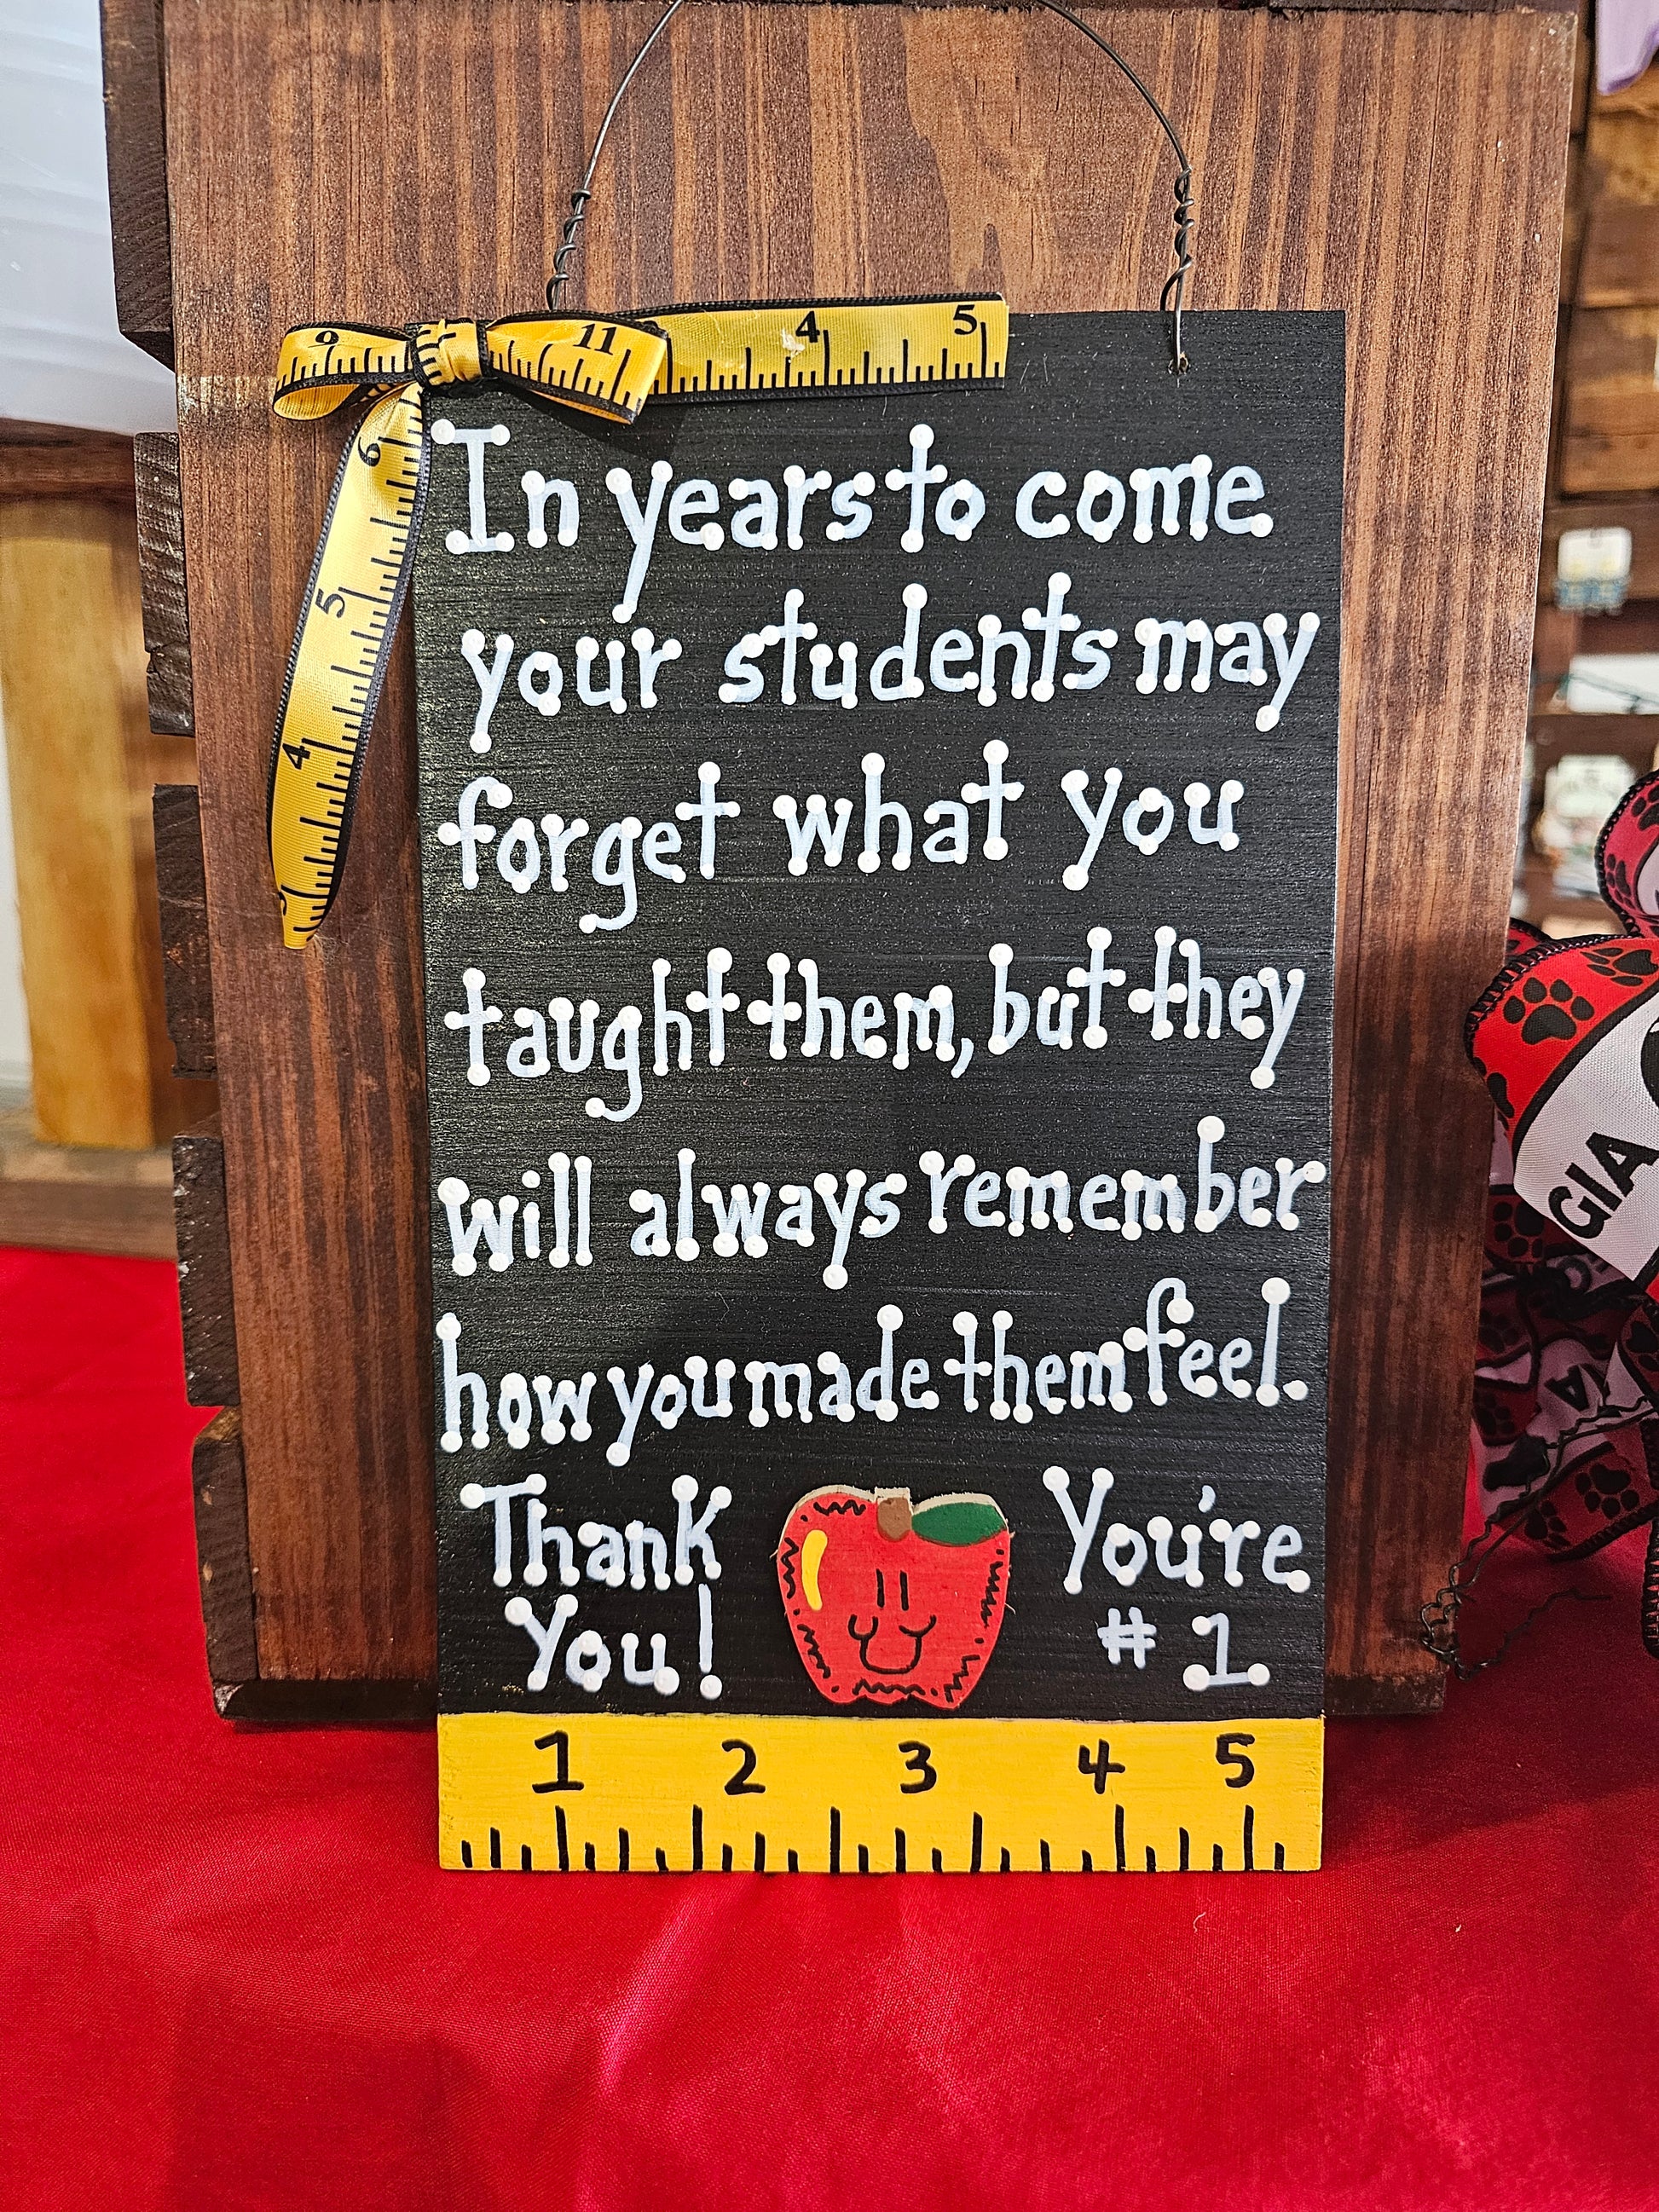 9 11 4 5
6
5
4
3
In years to come
your students may
forget what you
taught them, but they
will always remember
how you made them feel.
Thank You're
You! # 1
1 2 3 4 5
GIA